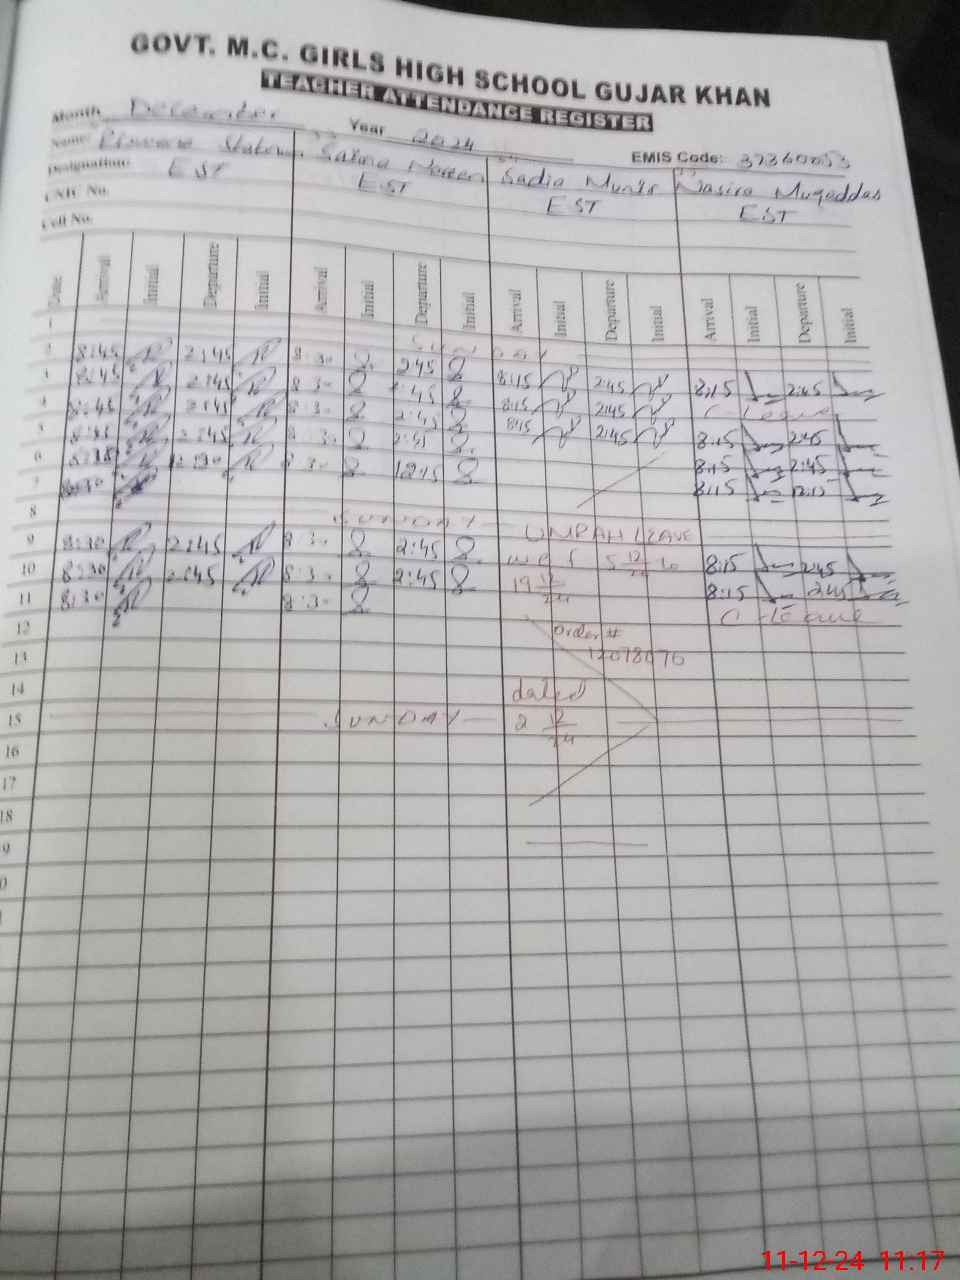 GOVT. M.C. GIRLS HIGH SCHOOL GUJAR KHAN
TEACHER ATTENDANCE REGISTER
Month December Year 2024 EMIS Code:
Name: Salma Sadia Munir Nasira Muqaddas
Designation: EST EST EST EST
CNIC No.
Cell No.
Date Arrival Initial Departure Initial Arrival Initial Departure Initial Arrival Initial Departure Initial Arrival Initial Departure Initial
1 SUNDAY
2 8:45 2:45 8:30 2:45 8:15 2:45 8:15 2:45
3 8:45 2:45 8:30 2:45 8:15 2:45 C leave
4 8:45 2:45 8:30 2:45 8:15 2:45 8:15 2:45
5 2:45 8:30 2:45 8:15 2:45
6 12:30 8:30 12:15 8:15 12:15
7 8:30
8 SUNDAY UNPAH LEAVE
9 8:30 2:45 8:30 2:45 w e f 5 12/24 to 8:15 2:45
10 8:30 2:45 8:30 2:45 19 12/24 8:15 2:45
11 8:30 8:30 C leave
12 order #
13 12078070
14 dated
15 SUNDAY 2 12/24
16
17
18
9
0
11-12-24 11:17